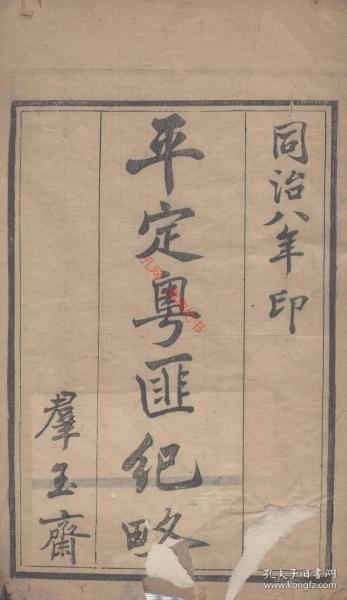 同治八年印
平定粵匪紀畧
羣玉齋
孔夫子旧书网
www.kongfz.com